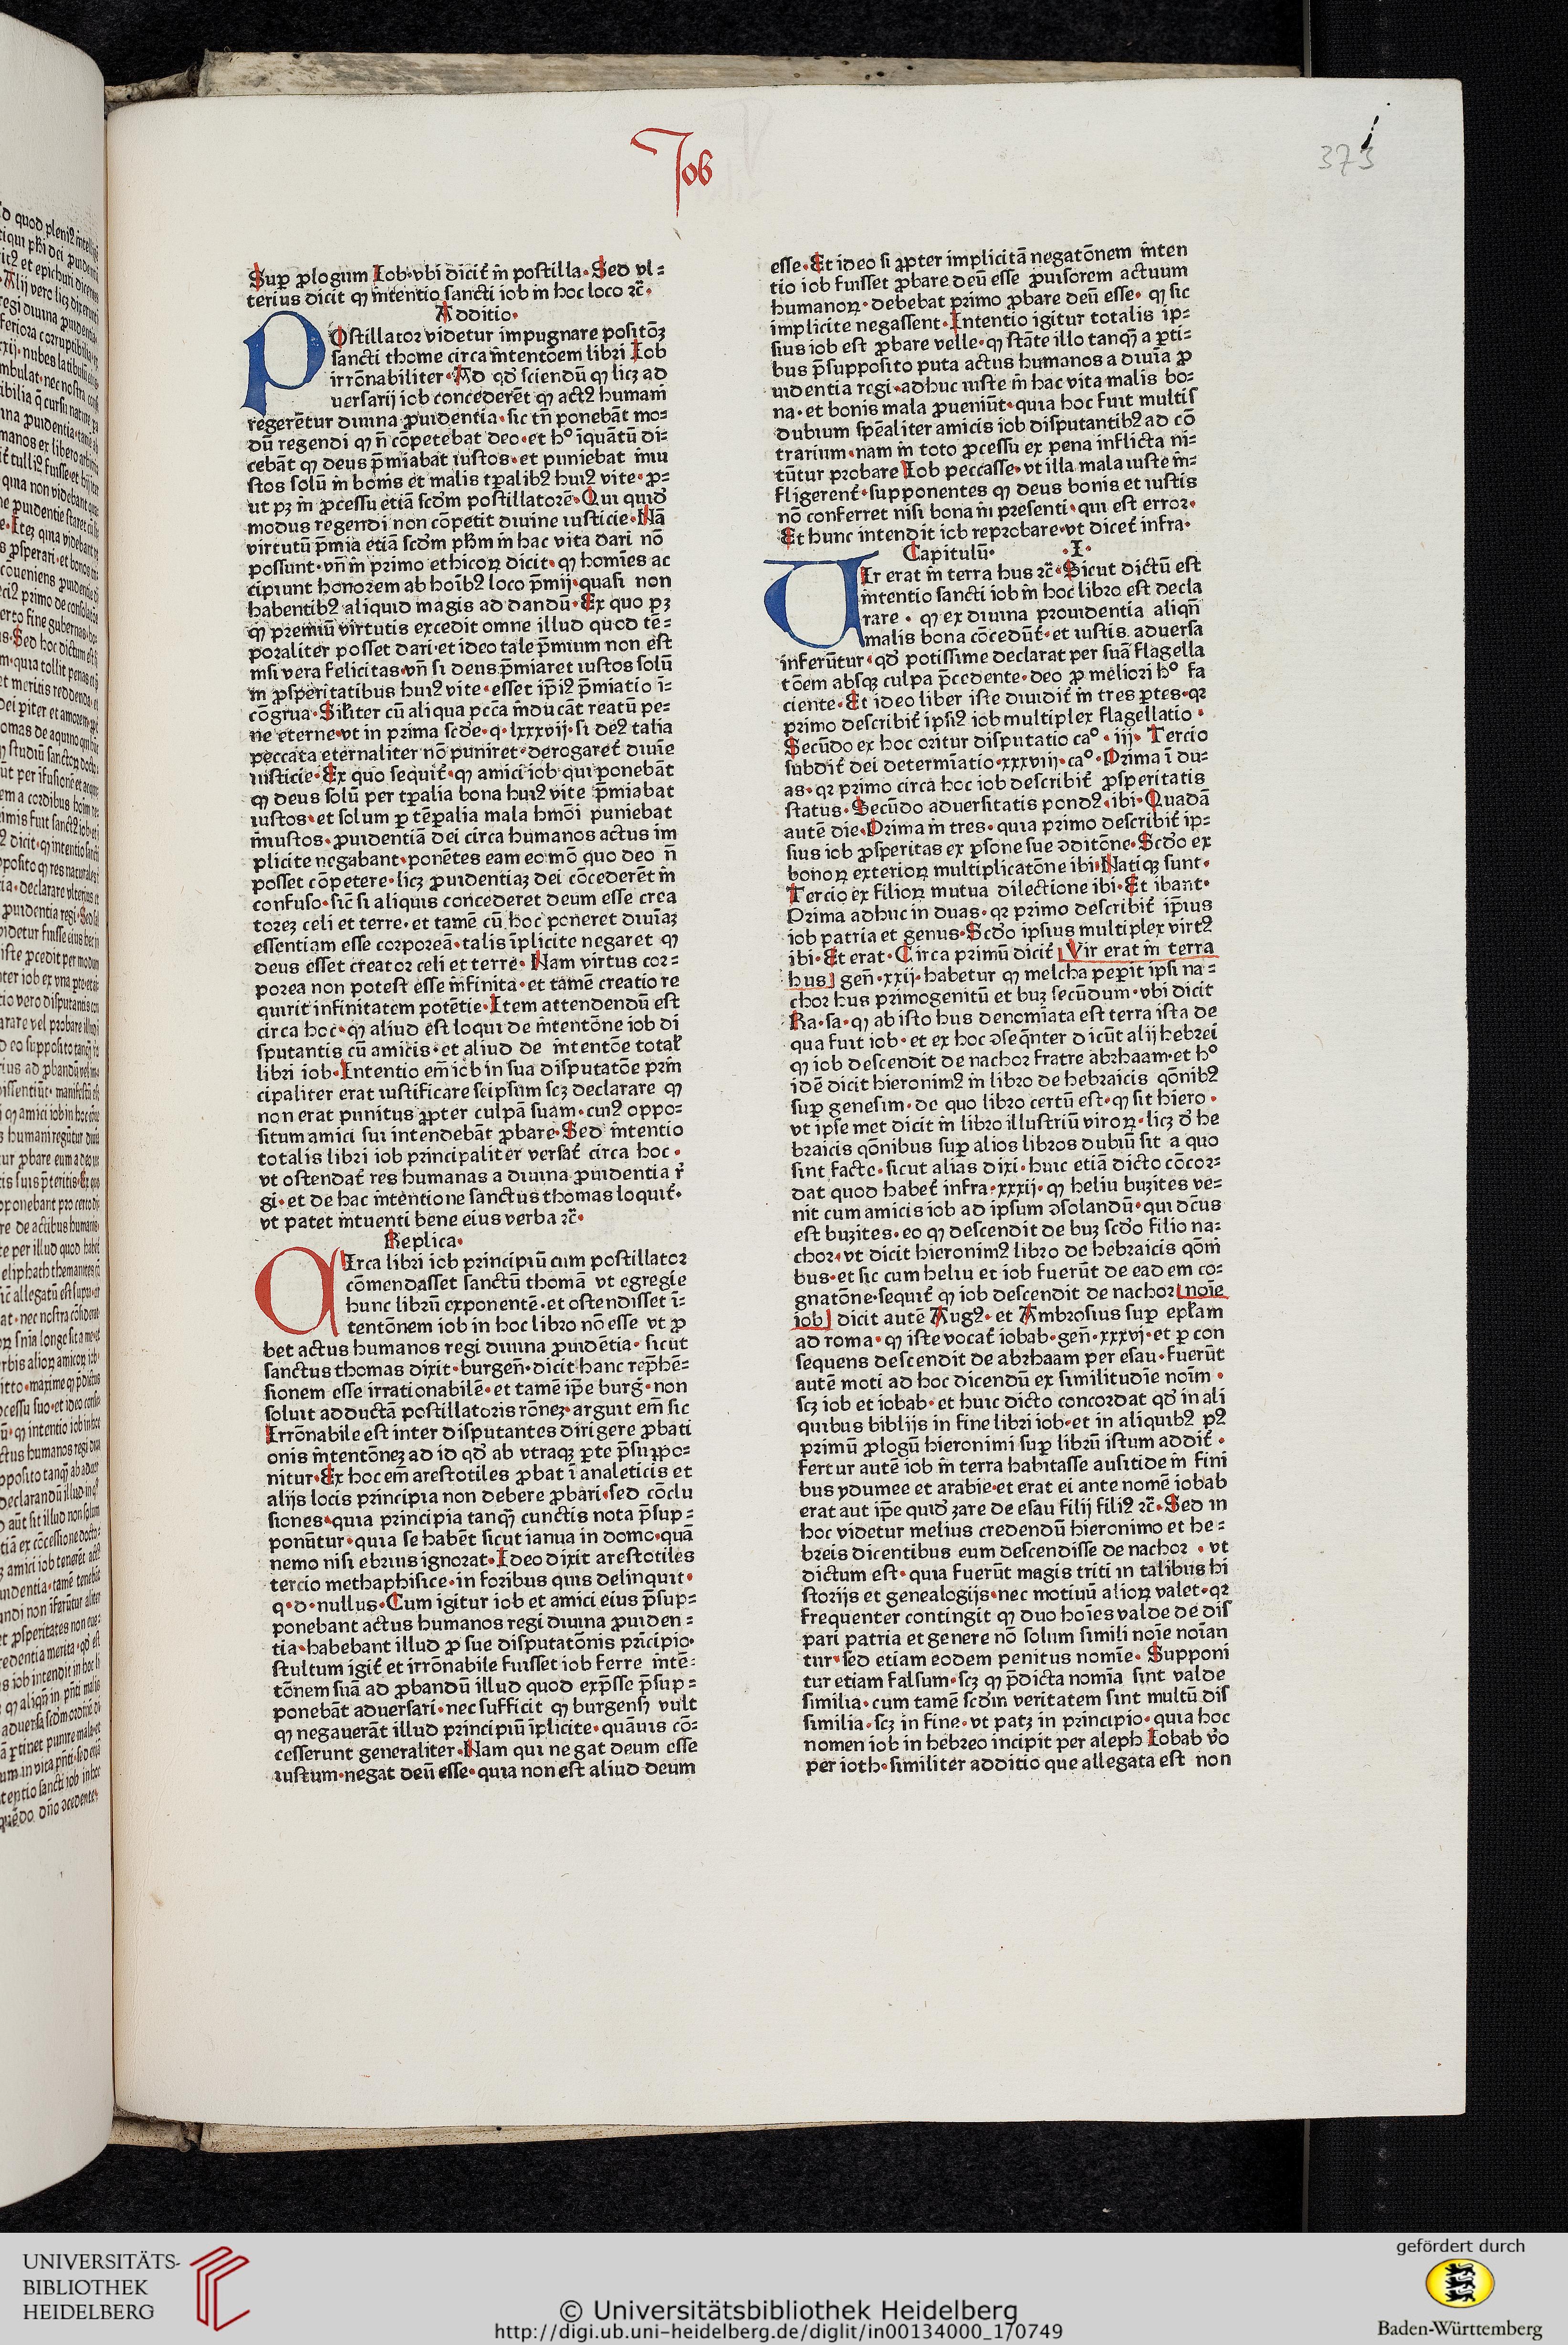 Job
373
Suꝑ ꝓlogum Iob·vbi dicit̄ in postilla·Sed vl-
terius dicit ꝙ intentio sancti iob in hoc loco ⁊c̄·
Additio·
POstillator videtur impugnare positōꝫ
sancti thome circa intentōem libri Iob
irrōnabiliter·Ad qđ sciendū ꝙ licꝫ ad
uersarij iob concederēt ꝙ actꝰ humani
regerētur diuina ꝓuidentia·sic tn̄ ponebāt mo-
dū regendi ꝙ n̄ cōpetebat deo·et hº īquātū di-
cebāt ꝙ deus p̄miabat iustos·et puniebat iniu
stos solū in bonis et malis tp̄alibꝰ huiꝰ vite·ꝓ-
ut pꝫ in ꝓcessu etiā scđm postillatorē·Qui quiđ
modus regendi non cōpetit diuine iusticie·Nā
virtutū p̄mia etiā scđm pħm in hac vita dari nō
possunt·vn̄ in primo ethicoꝝ dicit·ꝙ homīes ac
cipiunt honorem ab hoībꝰ loco p̄mij·quasi non
habentibꝰ aliquid magis ad dandū·Ex quo pꝫ
ꝙ premiū virtutis excedit omne illud quod tē-
poraliter posset dari·et ideo tale p̄mium non est
nisi vera felicitas·vn̄ si deus p̄miaret iustos solū
in ꝓsperitatibus huiꝰ vite·esset ip̄iꝰ p̄miatio ī-
cōgrua·Siłiter cū aliqua pccā inducāt reatū pe-
ne eterne·vt in prima scđe·q·lxxxvij·si deꝰ talia
peccata eternaliter nō puniret·derogaret̄ diuīe
iusticie·Ex quo sequit̄·ꝙ amici iob qui ponebāt
ꝙ deus solū per tp̄alia bona huiꝰ vite p̄miabat
iustos·et solum ꝑ tēp̄alia mala hmōi puniebat
iniustos·ꝓuidentiā dei circa humanos actus im
plicite negabant·ponētes eam eo mō quo deo n̄
posset cōpetere·licꝫ ꝓuidentiaꝫ dei cōcederēt in
confuso·sic̄ si aliquis concederet deum esse crea
toreꝫ celi et terre·et tamē cū hoc poneret diuīaꝫ
essentiam esse corporeā·talis īplicite negaret ꝙ
deus esset creator celi et terre·Nam virtus cor-
porea non potest esse infinita·et tamē creatio re
quirit infinitatem potētie·Item attendendū est
circa hoc·ꝙ aliud est loqui de intentōne iob di
sputantis cū amicis·et aliud de intentōe totał
libri iob·Intentio em̄ iob in sua disputatōe prin̄
cipaliter erat iustificare seipsum scꝫ declarare ꝙ
non erat punitus ꝓpter culpā suam·cuiꝰ oppo-
situm amici sui intendebāt ꝓbare·Sed intentio
totalis libri iob principaliter versat̄ circa hoc·
vt ostendat̄ res humanas a diuina ꝓuidentia r̄
gi·et de hac intentione sanctus thomas loquit̄·
vt patet intuenti bene eius verba ⁊c̄·
Replica·
CIrca libri iob principiū cum postillator
cōmendasset sanctū thomā vt egregie
hunc librū exponentē·et ostendisset ī-
tentōnem iob in hoc libro nō esse vt ꝓ
bet actus humanos regi diuina ꝓuidētia·sicut
sanctus thomas dixit·burgen̄·dicit hanc rep̄hē-
sionem esse irrationabilē·et tamē ip̄e burḡ·non
soluit adductā postillatoris rōneꝫ·arguit em̄ sic
Irrōnabile est inter disputantes dirigere ꝓbati
onis intentōneꝫ ad id qđ ab vtraqꝫ ꝑte p̄suppo-
nitur·Ex hoc em̄ arestotiles ꝓbat ī analeticis et
alijs locis principia non debere ꝓbari·sed cōclu
siones·quia principia tanqꝫ cunctis nota p̄sup-
ponūtur·quia se habēt sicut ianua in domo·quā
nemo nisi ebrius ignorat·Ideo dixit arestotiles
tercio methaphisice·in foribus quis delinquit·
q·d·nullus·Cum igitur iob et amici eius p̄sup-
ponebant actus humanos regi diuina ꝓuiden-
tia·habebant illud ꝓ sue disputatōnis prīcipio·
stultum igit̄ et irrōnabile fuisset iob ferre intē-
tōnem suā ad ꝓbandū illud quod exp̄sse p̄sup-
ponebāt aduersari·nec sufficit ꝙ burgenꝫ vult
ꝙ negauerāt illud principiū īplicite·quāuis cō-
cesserunt generaliter·Nam qui negat deum esse
iustum·negat deū esse·quia non est aliud deum
esse·Et ideo si ꝓpter implicitā negatōnem inten
tio iob fuisset ꝓbare deū esse ꝓuisorem actuum
humanoꝝ·debebat primo ꝓbare deū esse·ꝙ sic
implicite negassent·Intentio igitur totalis ip-
sius iob est ꝓbare velle·ꝙ stāte illo tanqꝫ a ꝑti-
bus p̄supposito puta actus humanos a diuīa ꝓ
uidentia regi·adhuc iuste in hac vita malis bo-
na·et bonis mala ꝓueniūt·quia hoc fuit multis
dubium spēaliter amicis iob disputantibꝰ ad cō
trarium·nam in toto ꝓcessu ex pena inflicta ni-
tūtur probare Iob peccasse·vt illa mala iuste in-
fligerent̄·supponentes ꝙ deus bonis et iustis
nō conferret nisi bona in presenti·qui est error·
Et hunc intendit iob reprobare·vt dicet̄ infra·
Capitulū· ·I·
VIr erat in terra hus ⁊c̄·Sicut dictū est
intentio sancti iob in hoc libro est decla
rare·ꝙ ex diuina prouidentia aliqn̄
malis bona cōcedūt̄·et iustis aduersa
inferūtur·qđ potissime declarat per suā flagella
tōem absqꝫ culpa p̄cedente·deo ꝓ meliori hº fa
ciente·Et ideo liber iste diuidit̄ in tres ꝑtes·qꝛ
primo describit̄ ipsiꝰ iob multiplex flagellatio·
Secūdo ex hoc oritur disputatio caº·iij·Tercio
subdit̄ dei determīatio·xxxviij·caº·Prima ī du-
as·qꝛ primo circa hoc iob describit̄ ꝓsperitatis
status·Secūdo aduersitatis pondꝰ·ibi·Quadā
autē die·Prima in tres·quia primo describit̄ ip-
sius iob ꝓsperitas ex ꝑsone sue ↄditōne·Scđo ex
bonoꝝ exterioꝝ multiplicatōne ibi·Natiqꝫ sunt·
Tercio ex filioꝝ mutua dilectione ibi·Et ibant·
Prima adhuc in duas·qꝛ primo describit̄ ip̄ius
iob patria et genus·Scđo ipsius multiplex virtꝰ
ibi·Et erat·Circa primū dicit̄ Vir erat in terra
hus gen̄·xxij·habetur ꝙ melcha peperit ipsi na-
chor hus primogenitū et buꝫ secūdum·vbi dicit
Ra·sa·ꝙ ab isto hus denomīata est terra ista de
qua fuit iob·et ex hoc ↄseqn̄ter dicūt alij hebrei
ꝙ iob descendit de nachor fratre abrhaam·et hº
idē dicit hieronimꝰ in libro de hebraicis qōnibꝰ
suꝑ genesim·de quo libro certū est·ꝙ sit hiero·
vt ipse met dicit in libro illustriū viroꝝ·licꝫ đ he
braicis qōnibus suꝑ alios libros dubiū sit a quo
sint facte·sicut alias dixi·huic etiā dicto cōcor-
dat quod habet̄ infra·xxxij·ꝙ heliu buzites ve-
nit cum amicis iob ad ipsum ↄsolandū·qui dc̄us
est buzites·eo ꝙ descendit de buꝫ scđo filio na-
chor·vt dicit hieronimꝰ libro de hebraicis qōni
bus·et sic cum heliu et iob fuerūt de eadem co-
gnatōne·sequit̄ ꝙ iob descendit de nachor noīe
iob dicit autē Augꝰ·et Ambrosius suꝑ epłam
ad roma·ꝙ iste vocat̄ iobab·gen̄·xxxvj·et ꝑ con
sequens descendit de abrhaam per esau·fuerūt
autē moti ad hoc dicendū ex similitudīe noīm·
scꝫ iob et iobab·et huic dicto concordat qđ in ali
quibus biblijs in fine libri iob·et in aliquibꝰ pꝰ
primū ꝓlogū hieronimi suꝑ librū istum addit̄·
fertur autē iob in terra habitasse ausitide in fini
bus ydumee et arabie·et erat ei ante nomē iobab
erat aut ip̄e quiđ zare de esau filij filiꝰ ⁊c̄·Sed in
hoc videtur melius credendū hieronimo et he-
breis dicentibus eum descendisse de nachor·vt
dictum est·quia fuerūt magis triti in talibus hi
storijs et genealogijs·nec motiuū alioꝝ valet·qꝛ
frequenter contingit ꝙ duo hoīes valde de dis
pari patria et genere nō solum simili noīe noīan
tur·sed etiam eodem penitus nomīe·Supponi
tur etiam falsum·scꝫ ꝙ p̄dicta nomīa sint valde
similia·cum tamē scđm veritatem sint multū dis
similia·scꝫ in fine·vt patꝫ in principio·quia hoc
nomen iob in hebreo incipit per aleph Iobab v̊o
per ioth·similiter additio que allegata est non
UNIVERSITÄTS-
BIBLIOTHEK
HEIDELBERG
© Universitätsbibliothek Heidelberg
http://digi.ub.uni-heidelberg.de/diglit/in00134000_1/0749
gefördert durch
Baden-Württemberg